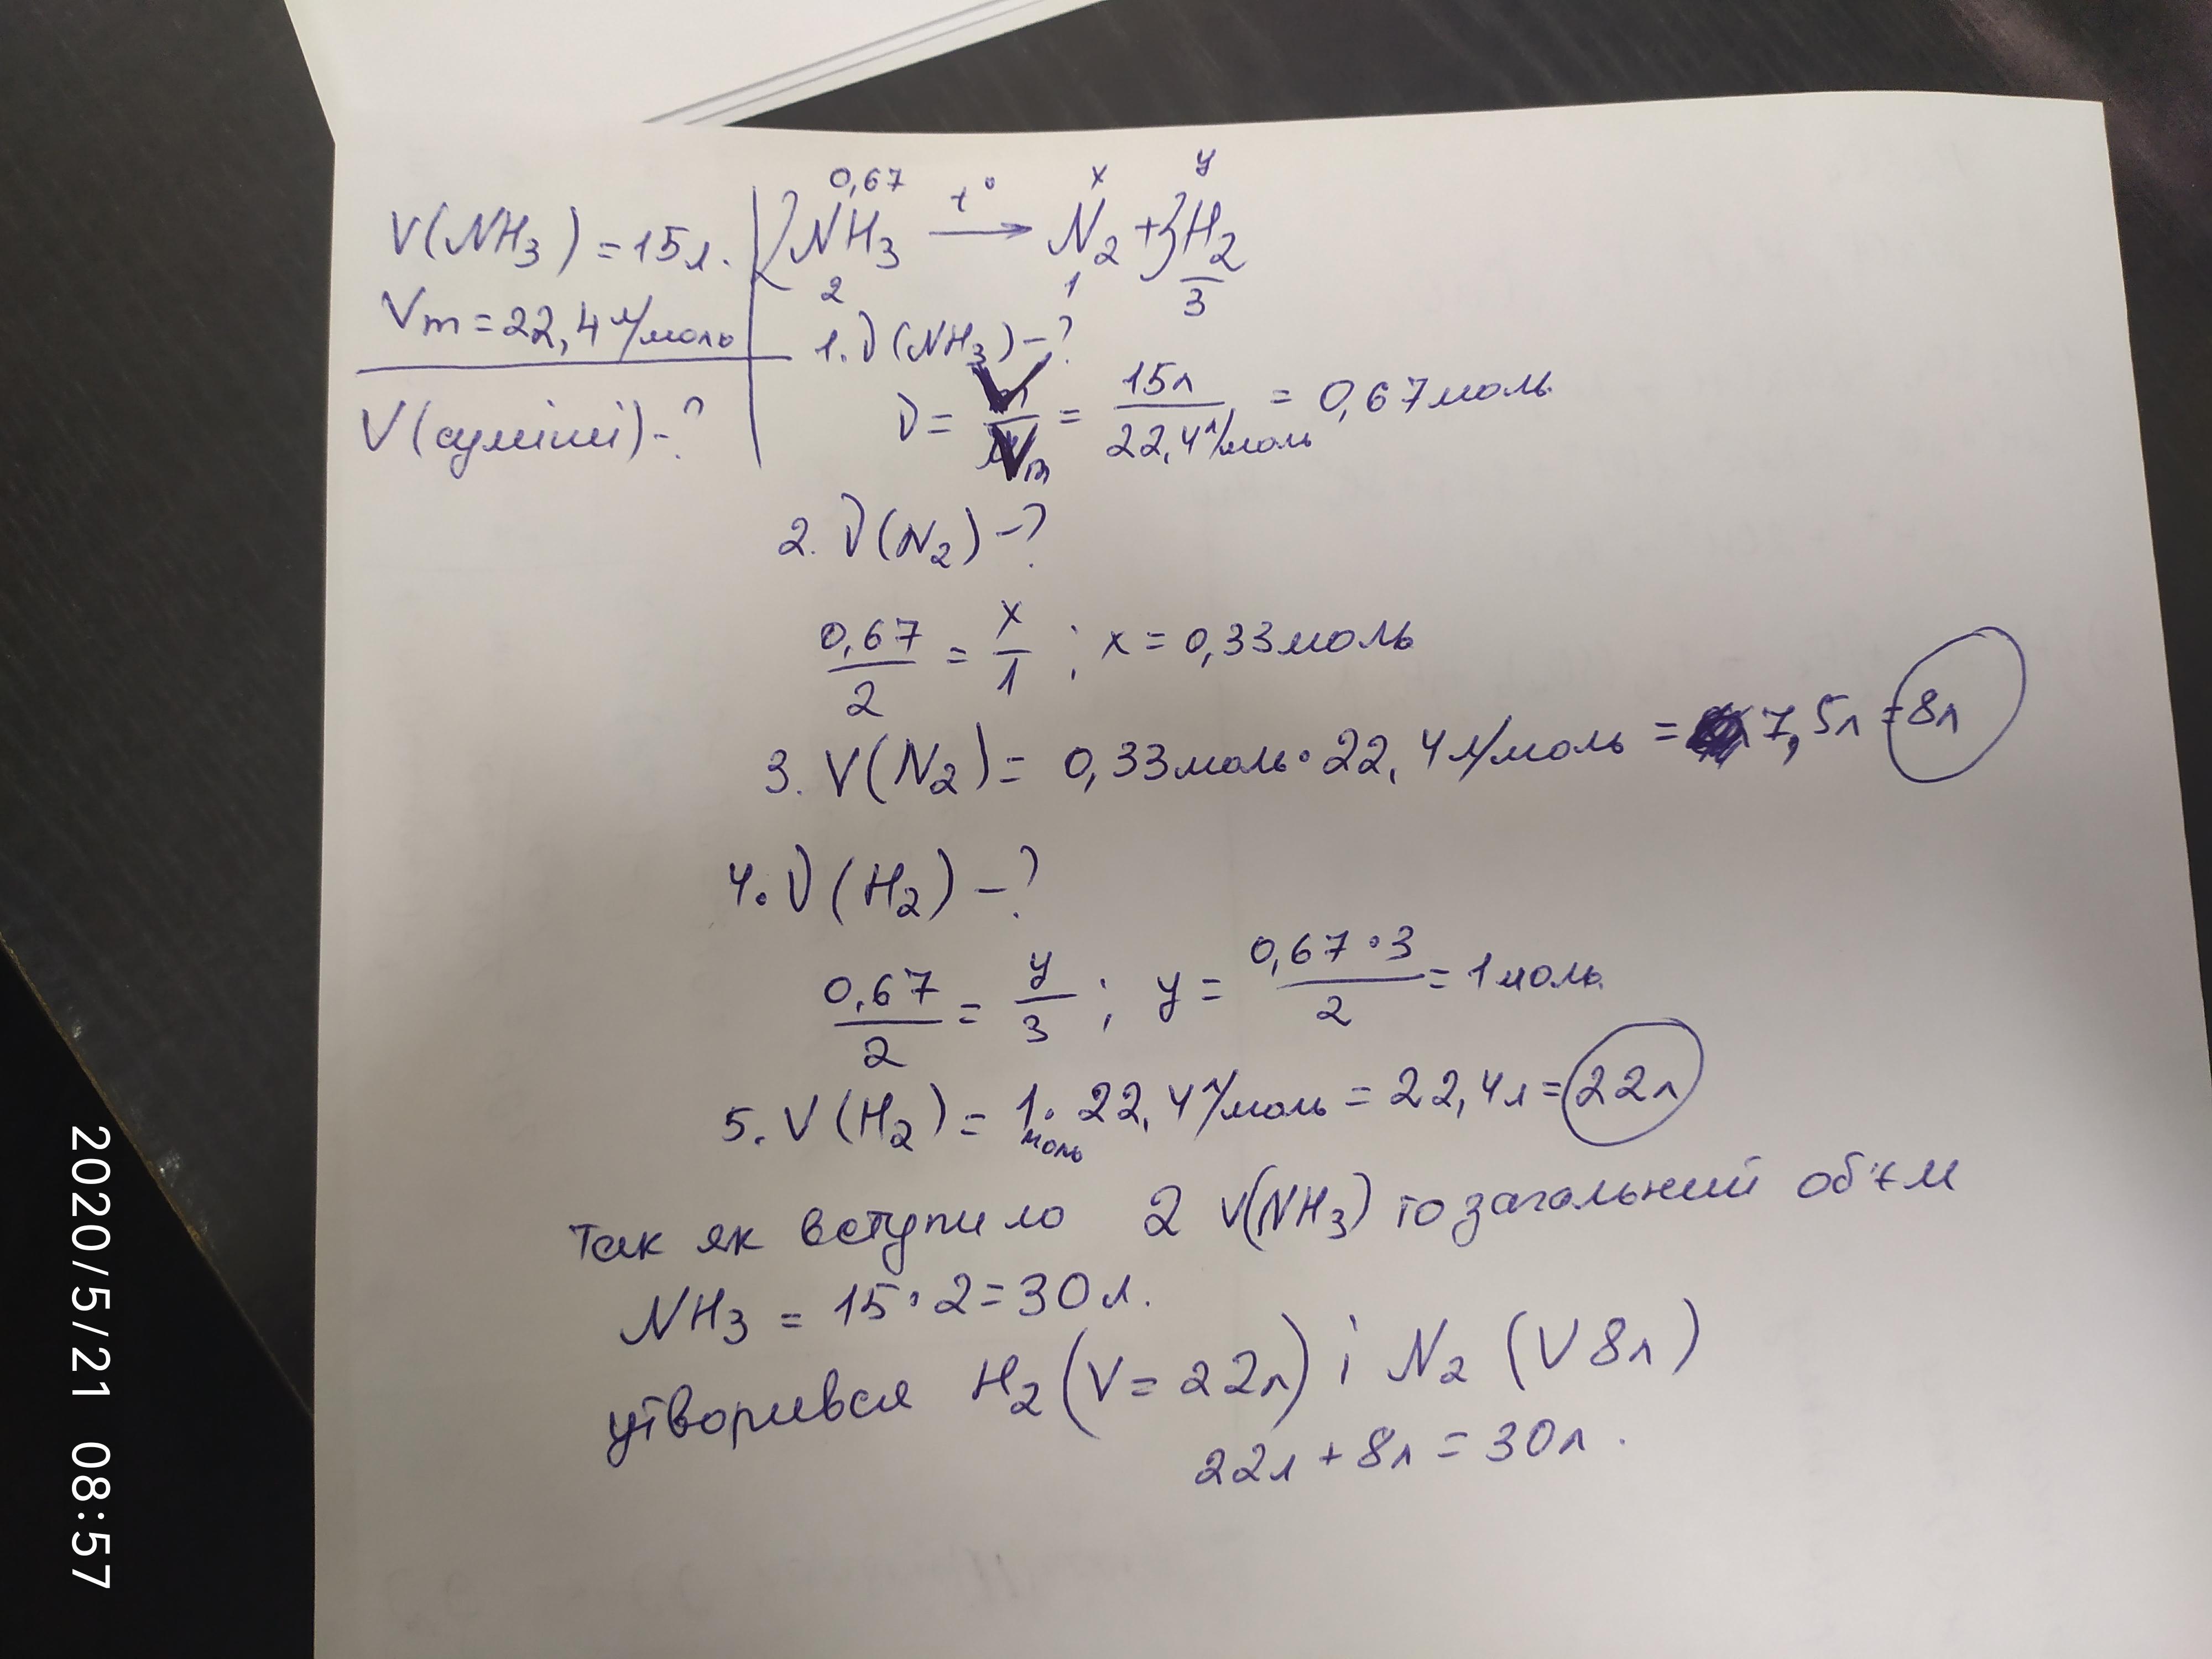 V(NH₃) = 15л.
Vm = 22,4 л/моль
V(суміші) - ?
0,67 t° x y
2NH₃ → N₂ + 3H₂
2 1 3
1. ν(NH₃) - ?
ν = V/Vm = 15л/22,4 л/моль = 0,67 моль
2. ν(N₂) - ?
0,67/2 = x/1 ; x = 0,33 моль
3. V(N₂) = 0,33 моль · 22,4 л/моль = 7,5л = 8л
4. ν(H₂) - ?
0,67/2 = y/3 ; y = 0,67·3/2 = 1 моль
5. V(H₂) = 1 моль · 22,4 л/моль = 22,4л = 22л
Так як вступило 2 V(NH₃) то загальний об'єм
NH₃ = 15·2 = 30л.
утворився H₂ (V = 22л) і N₂ (V 8л)
22л + 8л = 30л.
2020/5/21 08:57